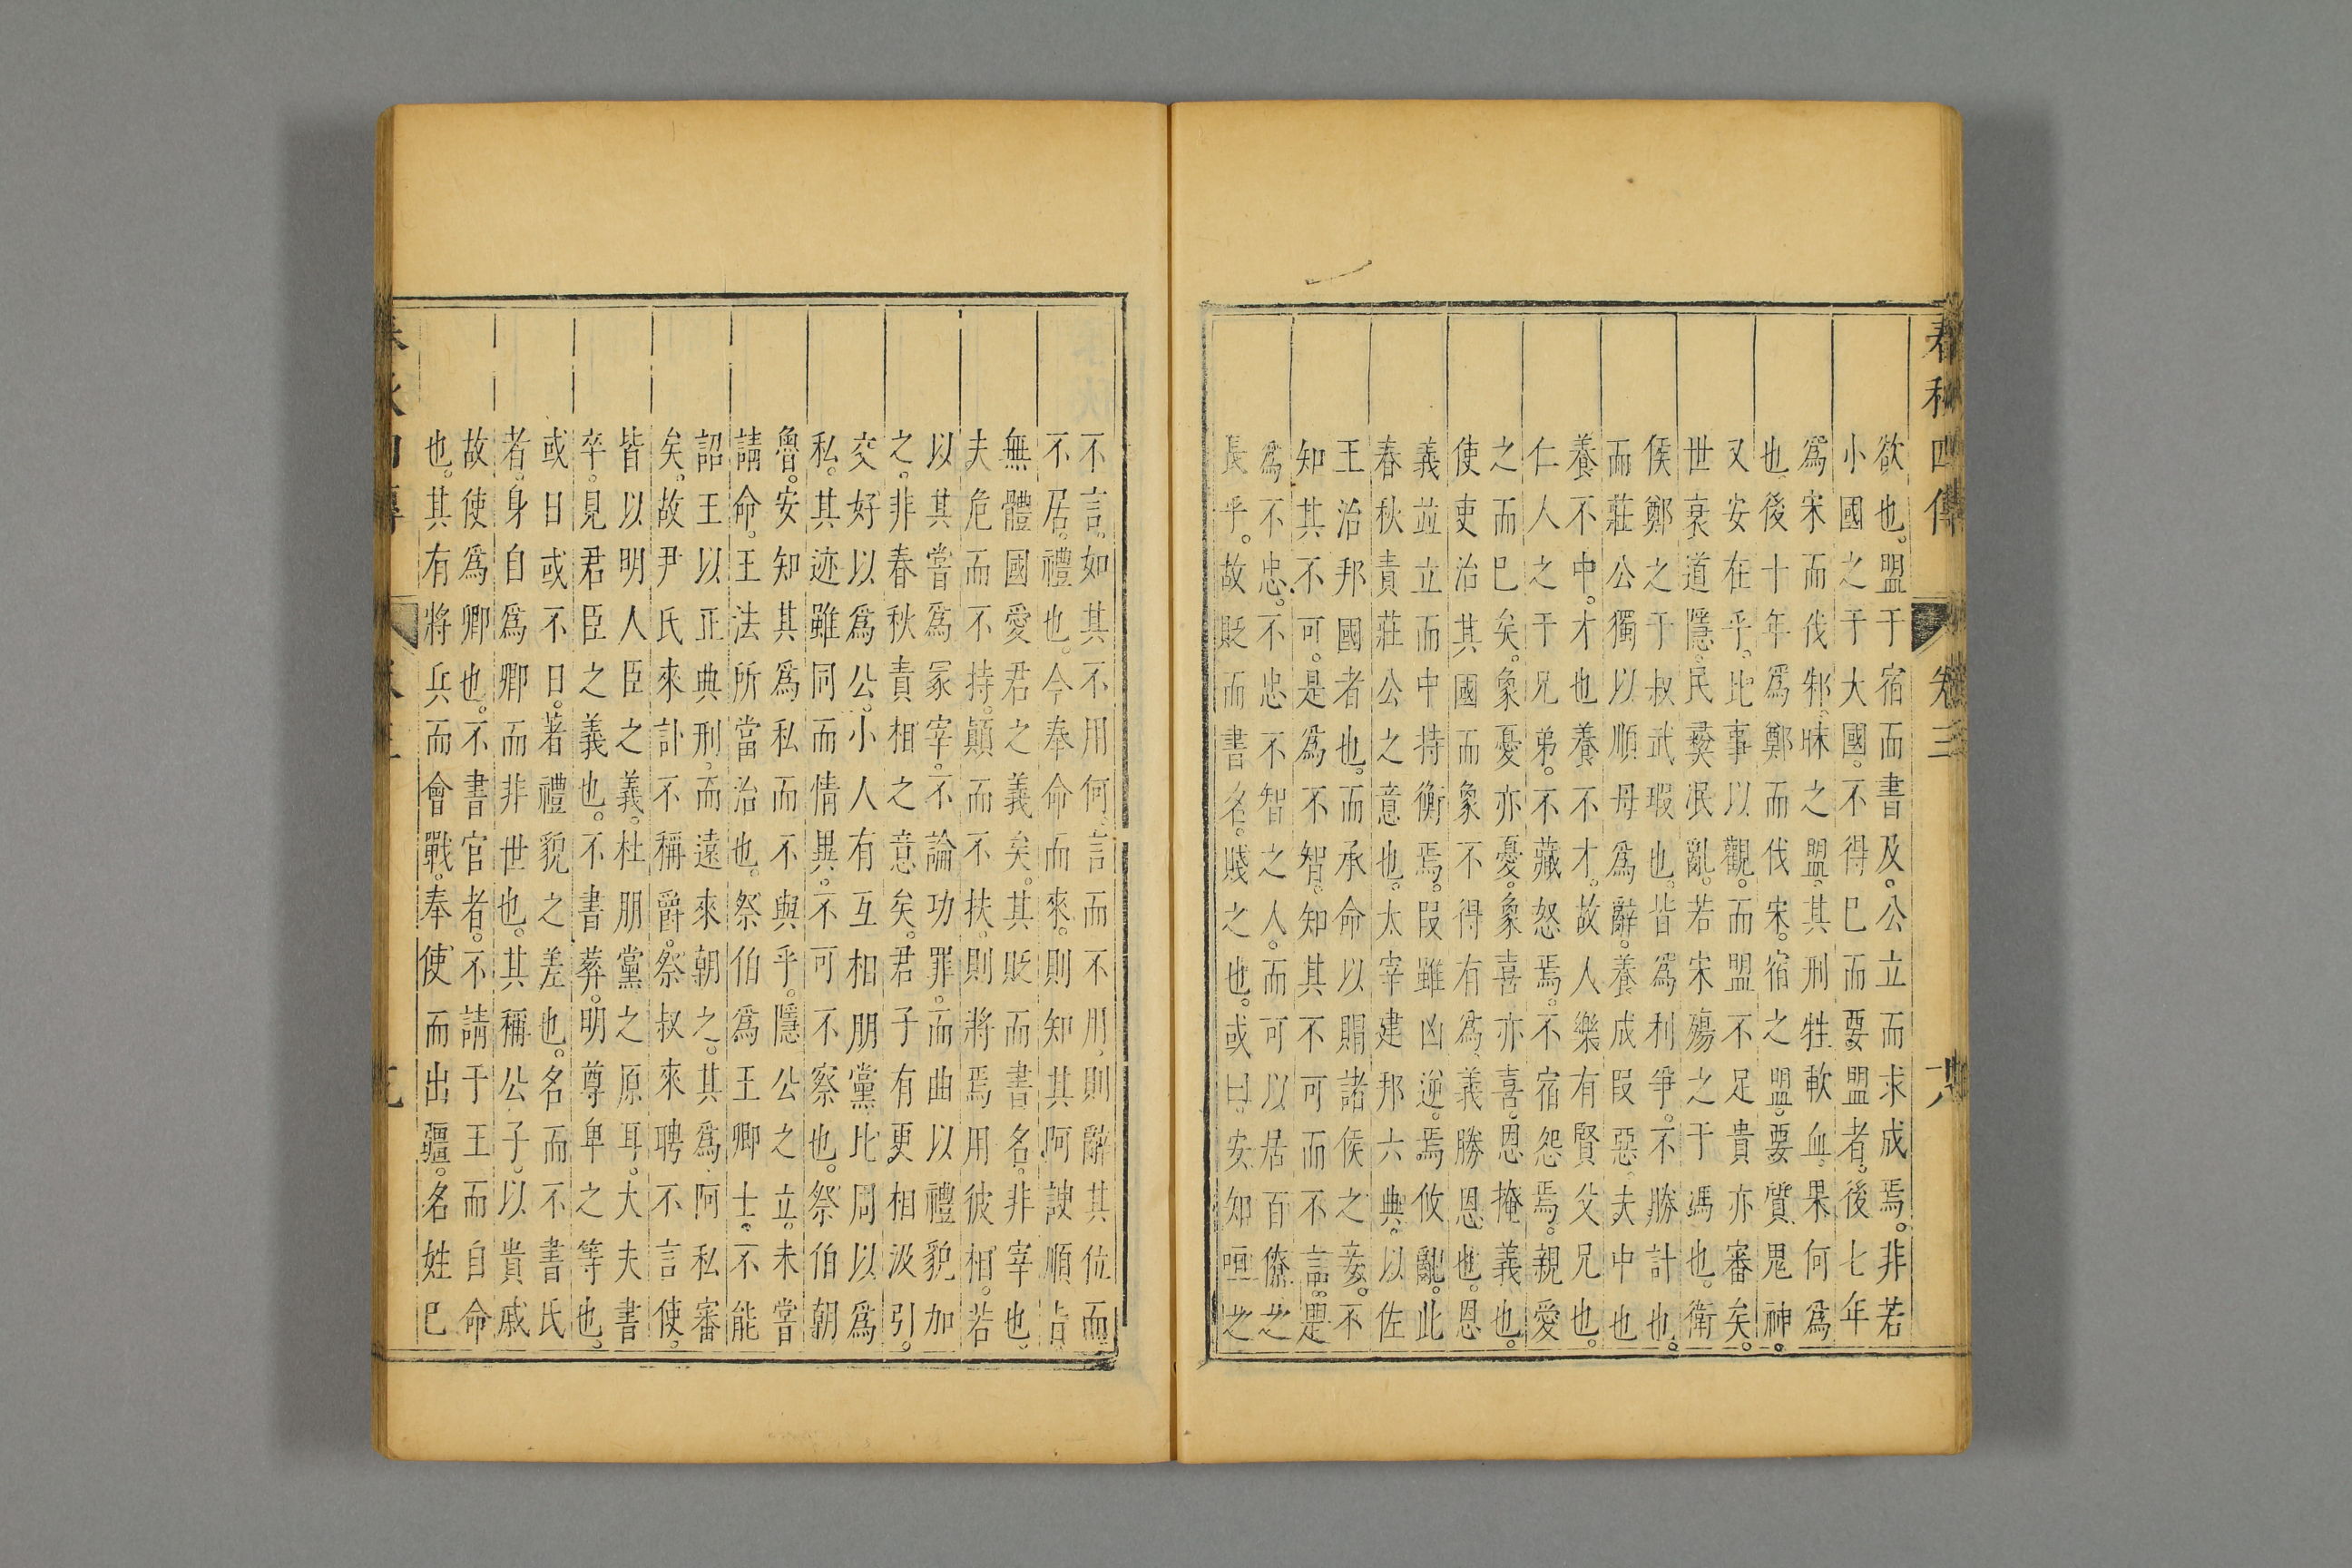 春秋四傳 卷三 六
欲也。盟于宿而書及。公立而求成焉。非若
小國之于大國。不得已而要盟者。後七年
爲宋而伐邾。昧之盟。其刑牲歃血。果何爲
也。後十年爲鄭而伐宋。宿之盟。要質鬼神。
又安在乎。比事以觀。而盟不足貴亦審矣。
世衰道隱。民彛泯亂。若宋殤之于馮也。衛
侯鄭之于叔武瑕也。皆爲利爭。不勝計也。
而莊公獨以順母爲辭。養成叚惡。夫中也
養不中。才也養不才。故人樂有賢父兄也。
仁人之于兄弟。不藏怒焉。不宿怨焉。親愛
之而已矣。象憂亦憂。象喜亦喜。恩掩義也。
使吏治其國而象不得有爲。義勝恩也。恩
義並立而中持衡焉。叚雖凶逆。焉攸亂。此
春秋責莊公之意也。太宰建邦六典。以佐
王治邦國者也。而承命以賵諸侯之妾。不
知其不可。是爲不智。知其不可而不言。是
爲不忠。不忠不智之人。而可以居百僚之
長乎。故貶而書名。賤之也。或曰。安知咺之
不言。如其不用何。言而不用。則辭其位而
不居。禮也。今奉命而來。則知其阿諛順㫖
無體國愛君之義矣。其貶而書名。非宰也。
夫危而不持。顛而不扶。則將焉用彼相。若
以其嘗爲冢宰。不論功罪。而曲以禮貌加
之。非春秋責相之意矣。君子有更相汲引。
交好以爲公。小人有互相朋黨比周以爲
私。其迹雖同而情異。不可不察也。祭伯朝
魯。安知其爲私而不與乎。隱公之立。未嘗
請命。王法所當治也。祭伯爲王卿士。不能
詔王以正典刑。而遠來朝之。其爲阿私審
矣。故尹氏來訃不稱爵。祭叔來聘不言使。
皆以明人臣之義。杜朋黨之原耳。大夫書
卒。見君臣之義也。不書葬。明尊卑之等也。
或日或不日。著禮貌之差也。名而不書氏
者。身自爲卿而非世也。其稱公子。以貴戚
故使爲卿也。不書官者。不請于王而自命
也。其有將兵而會戰。奉使而出疆。名姓已